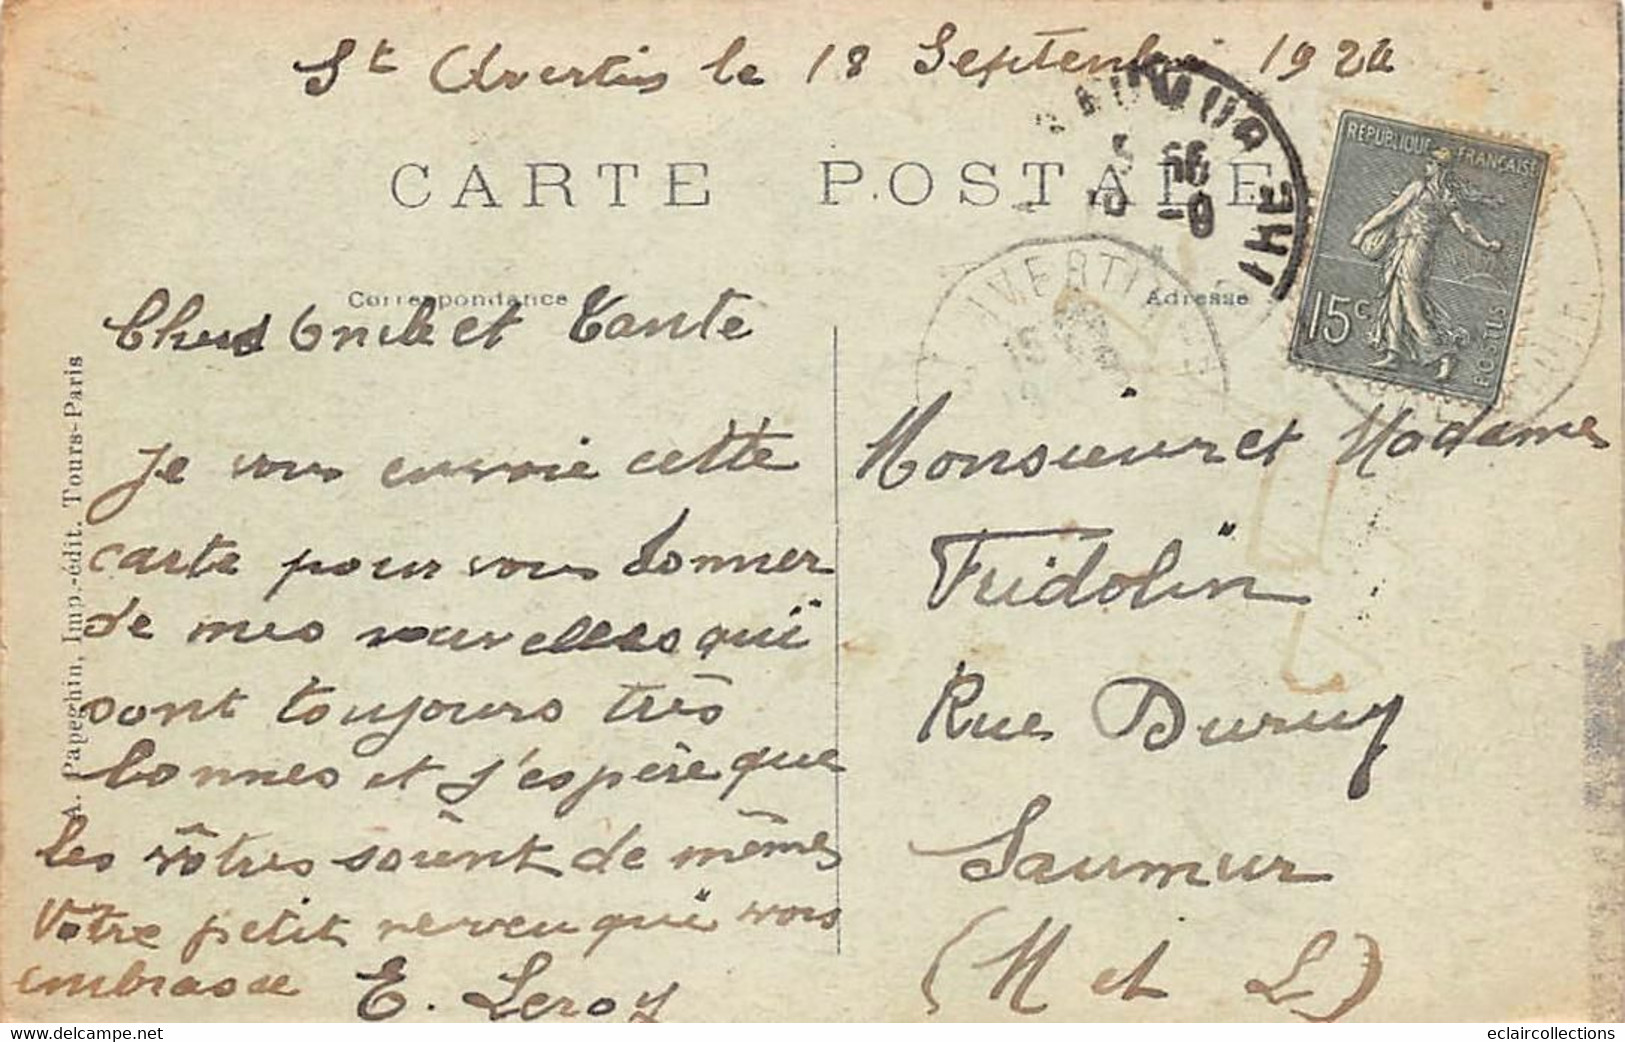 St Avertin le 18 Septembre 192
CARTE POSTALE
Correspondance
Adresse
RÉPUBLIQUE FRANÇAISE
15c
POSTES
AVERTIN
Chers Oncle et Tante
Je vous envoie cette
carte pour vous donner
de mes nouvelles qui
sont toujours très
bonnes et j'espère que
les vôtres soient de mêmes
Votre petit neveu qui vous
embrasse E. Leroy
Monsieur et Madame
Fridolin
Rue Duruy
Saumur
(M et L)
A. Papeghin, Imp.-édit. Tours-Paris
eclaircollections